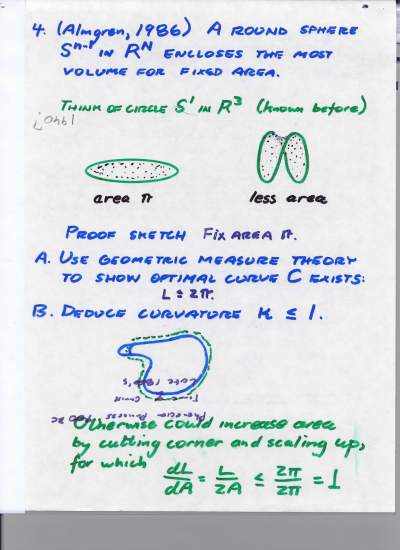 4. (Almgren, 1986) A ROUND SPHERE
Sⁿ⁻¹ IN Rᴺ ENCLOSES THE MOST
VOLUME FOR FIXED AREA.
THINK OF CIRCLE S¹ IN R³ (known before)
1940?
area π
less area
PROOF SKETCH FIX AREA π.
A. USE GEOMETRIC MEASURE THEORY
TO SHOW OPTIMAL CURVE C EXISTS:
L ≤ 2π.
B. DEDUCE CURVATURE K ≤ 1.
Late 1800's
Phoenician Princess
Otherwise could increase area
by cutting corner and scaling up,
for which
dL/dA = L/2A ≤ 2π/2π = 1